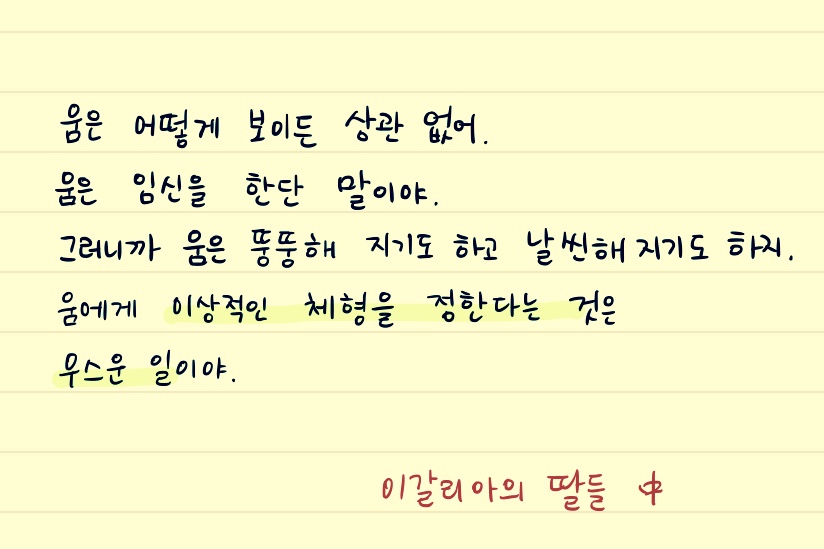 움은 어떻게 보이든 상관 없어.
움은 임신을 한단 말이야.
그러니까 움은 뚱뚱해 지기도 하고 날씬해 지기도 하지.
움에게 이상적인 체형을 정한다는 것은
우스운 일이야.
이갈리아의 딸들 中